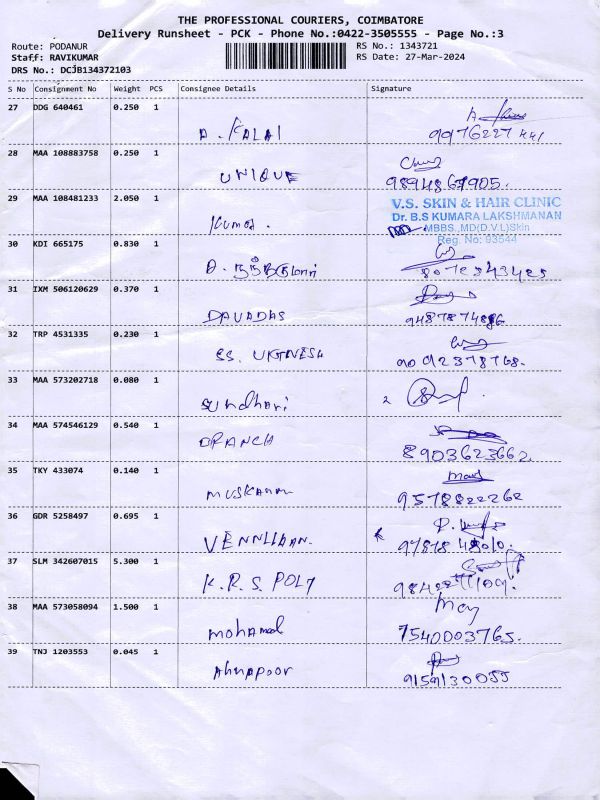 THE PROFESSIONAL COURIERS, COIMBATORE
Delivery Runsheet - PCK - Phone No.:0422-3505555 - Page No.:3
Route: PODANUR
RS No.: 1343721
Staff: RAVIKUMAR
RS Date: 27-Mar-2024
DRS No.: DCJB134372103
S No Consignment No Weight PCS Consignee Details Signature
27 DDG 640461 0.250 1
A. KALAI
28 MAA 108883758 0.250 1
UNIQUE
9894867905.
29 MAA 108481233 2.050 1
V.S. SKIN & HAIR CLINIC
Dr. B.S KUMARA LAKSHMANAN
MBBS.,MD(D.V.L)Skin
Reg. No: 93544
Kumar.
30 KDI 665175 0.830 1
8072543425
31 IXM 506120629 0.370 1
DAVADAS
9487874886
32 TRP 4531335 0.230 1
SS. VIGNESH
9092378768.
33 MAA 573202718 0.080 1
Sundhari
34 MAA 574546129 0.540 1
BRANCH
8903623662.
35 TKY 433074 0.140 1
MUSKAAN
9578822262
36 GDR 5258497 0.695 1
37 SLM 342607015 5.300 1
K.R.S. POLY
38 MAA 573058094 1.500 1
Mohamed
7540003765.
39 TNJ 1203553 0.045 1
9159130055